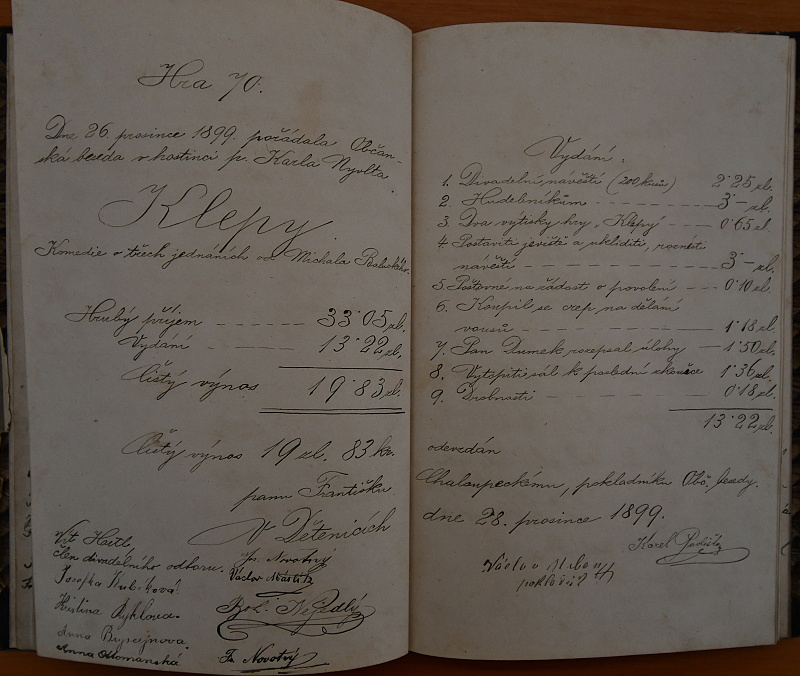 Hra 70.
Dne 26. prosince 1899 pořádala Občan-
ská beseda v hostinci p. Karla Nyvlta
Klepy.
Komedie o třech jednáních od Michala Baluckého.
Hrubý příjem ------ 33·05 zl.
Vydání ------ 13·22 zl.
Čistý výnos 19·83 zl.
Čistý výnos 19 zl. 83 kr.
panu Františku
V Dětenicích
Vít Hartl
člen divadelního odboru.
Josefka Kubíková
Kristina Ryklova
Anna
Anna
Jos. Novotný
Václav
Boh. Nejedlý
Fr. Novotný
Vydání.
1. Divadelní návěští (200 kusů) 2·25 zl.
2. Hudebníkům ------ 3·— zl.
3. Dva výtisky hry „Klepy" --- 0·65 zl.
4. Postaviti jeviště a ukliditi, roznésti
návěští ------ 3·— zl.
5. Poštovné na žádost o povolení -- 0·10 zl.
6. Koupil se crep na dělání
vousů ------ 1·18 zl.
7. Pan Dumek rozepsal úlohy -- 1·50 zl.
8. Vytopiti sál k poslední zkoušce 1·36 zl.
9. Drobnosti ------ 0·18 zl.
13·22 zl.
odevzdán
Chaloupeckému, pokladníku Obč. besedy.
dne 28. prosince 1899.
Karel
Václav
pokladník